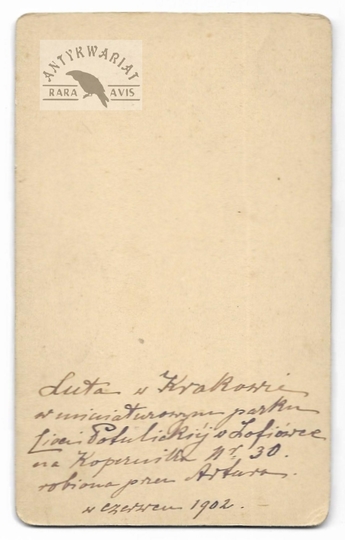 ANTYKWARIAT
RARA AVIS
Luta w Krakowie
w miniaturowym parku
Potulickiéj w Zofiówce
na Kopernika Nr. 30.
robiona przez Artura.
w czerwcu 1902.